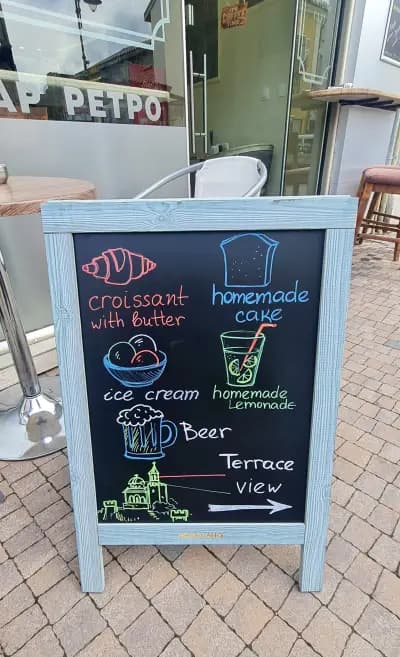 АР РЕТРО
croissant
with butter
homemade
cake
ice cream
homemade
Lemonade
Beer
Terrace
view